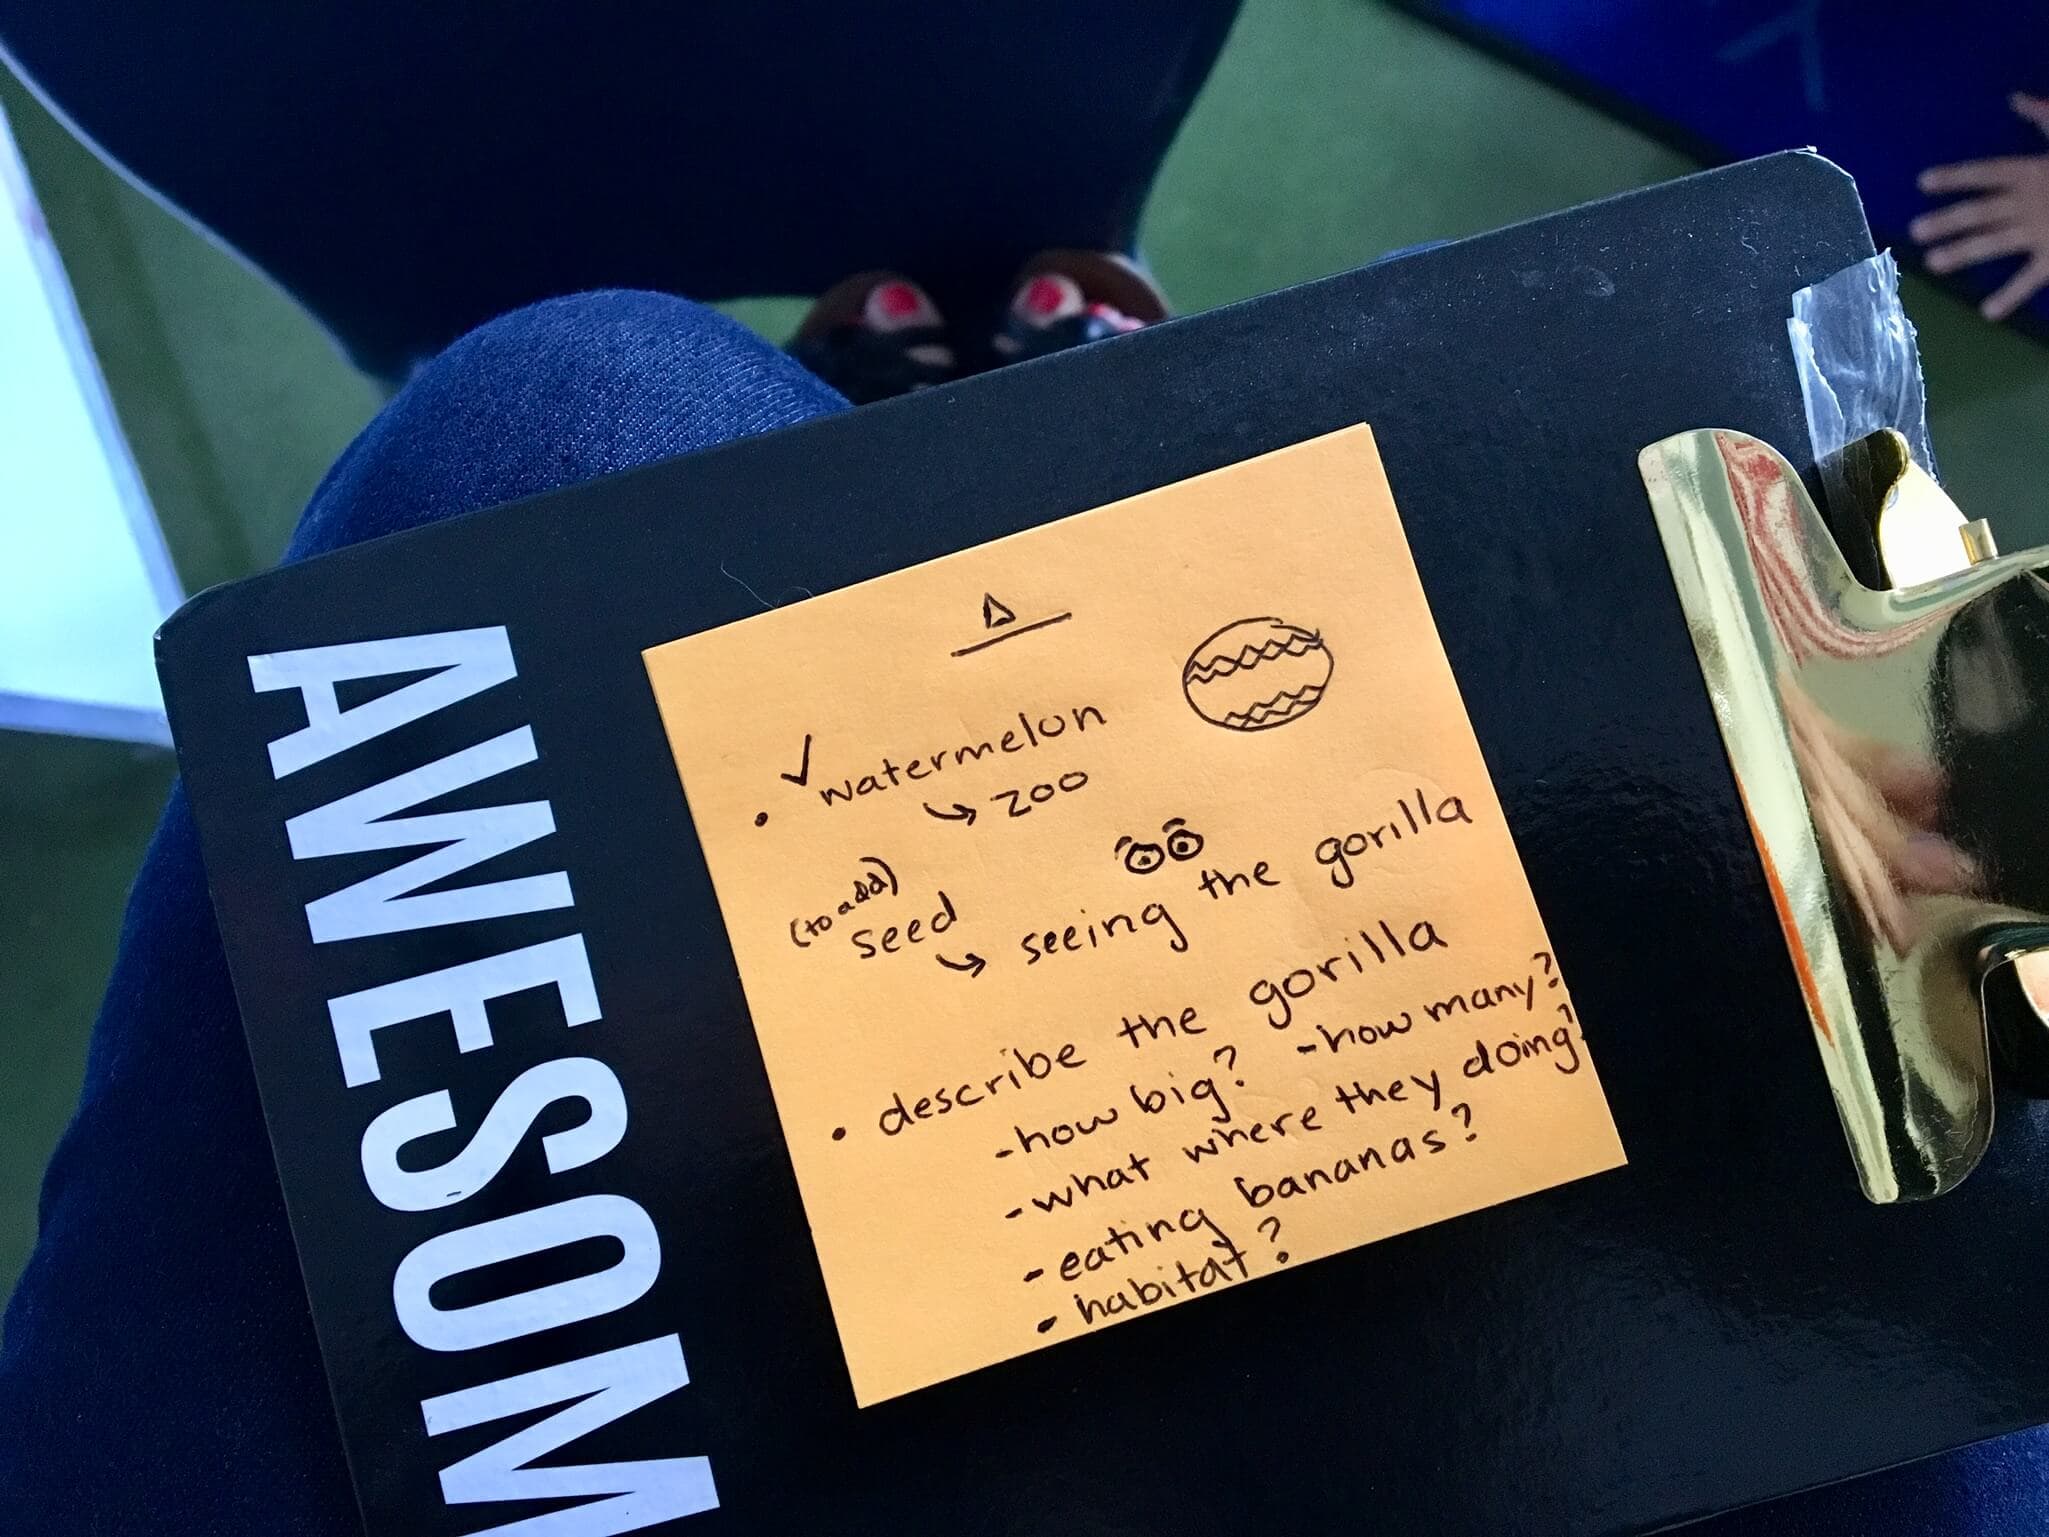 AWESOM
✓ watermelon
↳ zoo
(to add)
seed
↳ seeing the gorilla
• describe the gorilla
-how big? -how many?
-what where they doing?
-eating bananas?
- habitat?